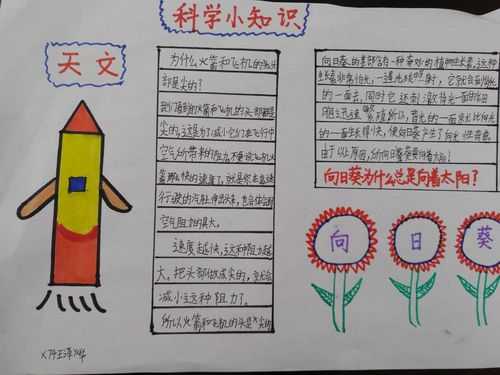 科学小知识
天文
为什么火箭和飞机的头
都是尖的？
我们看到的火箭和飞机的头都是
尖的,这是为了减小它们在飞行中
空气所带来的阻力,不要说飞机火
箭那么快的速度了,就是你在高速
行驶的汽车伸出头来,也会体会到
空气阻力的具大。
速度越快,这种阻力越
大。把头部做成尖的,
减小这种阻力了。
所以火箭和飞机的头是尖的
向日葵的茎部含有一种奇妙的植物生长素,这种
生长素非常怕光,一遇光线照射,它就会到背光
的一面去,同时它还刺激背光一面的细
胞迅速繁殖所以,背光的一面就比向光
的一面生长得快,使向日葵产生了向光性弯曲
由于以上原因,所以向日葵总是向着太阳！
向日葵为什么总是向着太阳？
向
日
葵